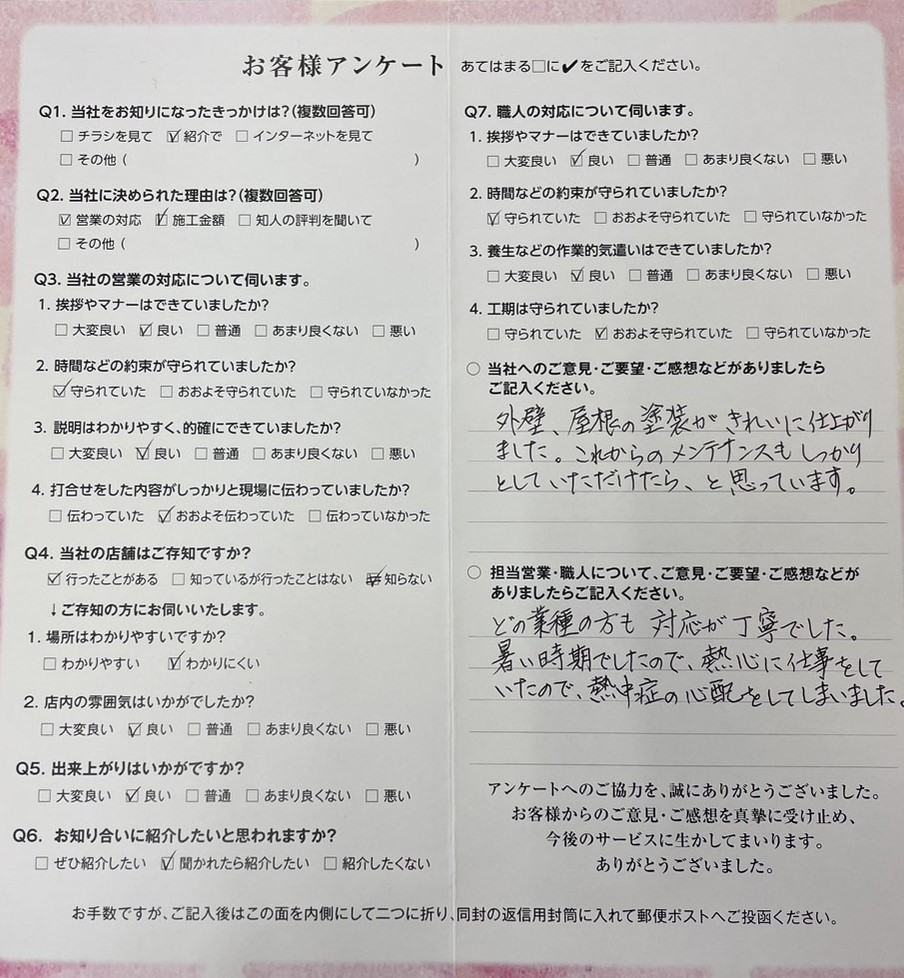 お客様アンケート あてはまる□に✔をご記入ください。
Q1. 当社をお知りになったきっかけは?(複数回答可)
□ チラシを見て ☑ 紹介で □ インターネットを見て
□ その他 ( )
Q2. 当社に決められた理由は?(複数回答可)
☑ 営業の対応 ☑ 施工金額 □ 知人の評判を聞いて
□ その他 ( )
Q3. 当社の営業の対応について伺います。
1. 挨拶やマナーはできていましたか?
□ 大変良い ☑ 良い □ 普通 □ あまり良くない □ 悪い
2. 時間などの約束が守られていましたか?
☑ 守られていた □ おおよそ守られていた □ 守られていなかった
3. 説明はわかりやすく、的確にできていましたか?
□ 大変良い ☑ 良い □ 普通 □ あまり良くない □ 悪い
4. 打合せをした内容がしっかりと現場に伝わっていましたか?
□ 伝わっていた ☑ おおよそ伝わっていた □ 伝わっていなかった
Q4. 当社の店舗はご存知ですか?
☑ 行ったことがある □ 知っているが行ったことはない ☑ 知らない
↓ご存知の方にお伺いいたします。
1. 場所はわかりやすいですか?
□ わかりやすい ☑ わかりにくい
2. 店内の雰囲気はいかがでしたか?
□ 大変良い ☑ 良い □ 普通 □ あまり良くない □ 悪い
Q5. 出来上がりはいかがですか?
□ 大変良い ☑ 良い □ 普通 □ あまり良くない □ 悪い
Q6. お知り合いに紹介したいと思われますか?
□ ぜひ紹介したい ☑ 聞かれたら紹介したい □ 紹介したくない
Q7. 職人の対応について伺います。
1. 挨拶やマナーはできていましたか?
□ 大変良い ☑ 良い □ 普通 □ あまり良くない □ 悪い
2. 時間などの約束が守られていましたか?
☑ 守られていた □ おおよそ守られていた □ 守られていなかった
3. 養生などの作業的気遣いはできていましたか?
□ 大変良い ☑ 良い □ 普通 □ あまり良くない □ 悪い
4. 工期は守られていましたか?
□ 守られていた ☑ おおよそ守られていた □ 守られていなかった
○ 当社へのご意見・ご要望・ご感想などがありましたら
ご記入ください。
外壁、屋根の塗装がきれいに仕上がり
ました。これからのメンテナンスもしっかり
としていただけたら、と思っています。
○ 担当営業・職人について、ご意見・ご要望・ご感想などが
ありましたらご記入ください。
どの業種の方も対応が丁寧でした。
暑い時期でしたので、熱心に仕事をして
いたので、熱中症の心配をしてしまいました。
アンケートへのご協力を、誠にありがとうございました。
お客様からのご意見・ご感想を真摯に受け止め、
今後のサービスに生かしてまいります。
ありがとうございました。
お手数ですが、ご記入後はこの面を内側にして二つに折り、同封の返信用封筒に入れて郵便ポストへご投函ください。